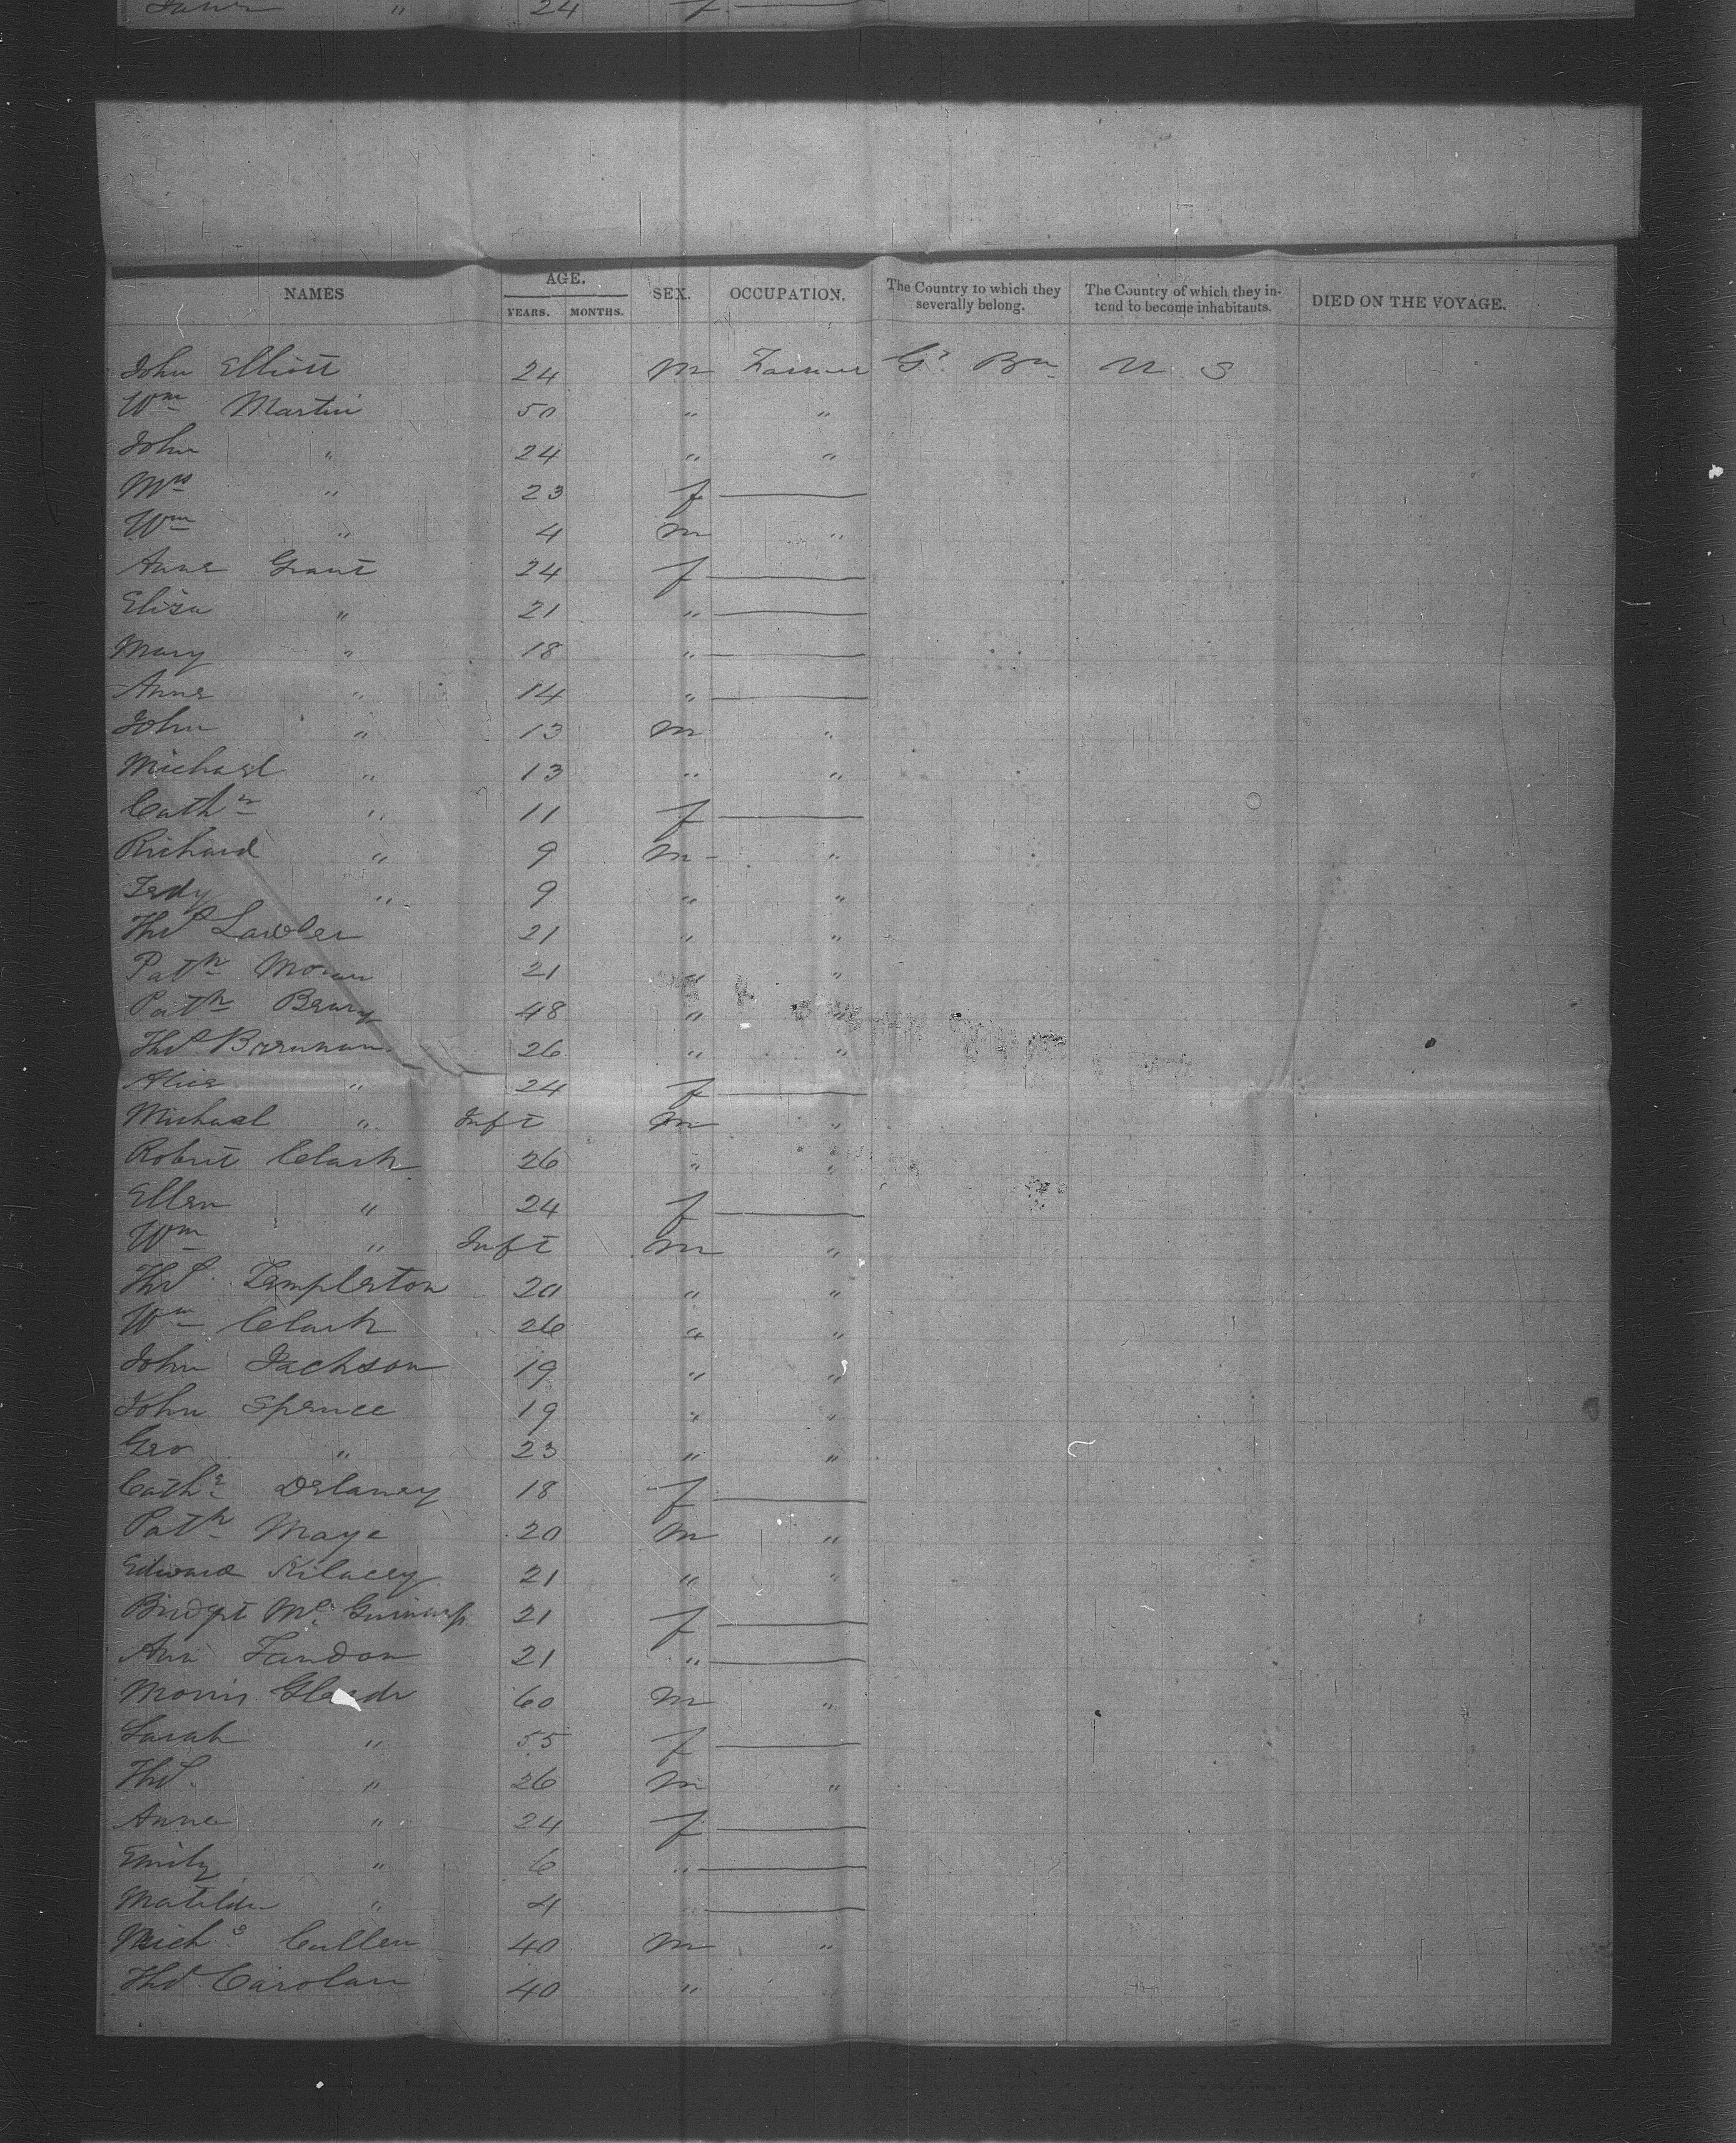 " 24 f
NAMES AGE. YEARS. MONTHS. SEX. OCCUPATION. The Country to which they severally belong. The Country of which they intend to become inhabitants. DIED ON THE VOYAGE.
John Elliott 24 m Farmer Gt. Bn U S
Wm Martin 50 " "
John " 24 " "
Mrs " 23 f
Wm " 4 m "
Anne Grant 24 f
Eliza " 21 "
Mary " 18 "
Anne " 14 "
John " 13 m "
Michael " 13 " "
Cathe " 11 f
Richard " 9 m "
Tedy " 9 " "
Thos Lawler 21 " "
Patk Moran 21 " "
Patk 48 " "
Thos Brennan 26 " "
Alice " 24 f
Michael " Inft m "
Robert Clark 26 " "
Ellen " 24 f
Wm " Inft m "
Thos Templeton 20 " "
Wm Clark 26 " "
John Jackson 19 " "
John Spence 19 " "
Geo " 23 " "
Cathe Delaney 18 f
Patk Maye 20 m "
Edward 21 " "
Bridget Mc Guinness 21 f
Ann 21 "
Morris 60 m "
Sarah " 55 f
Thos. " 26 m "
Anne " 24 f
Emily " 6 "
Matilda " 4 "
Michl Cullen 40 m "
Thos Carolan 40 "